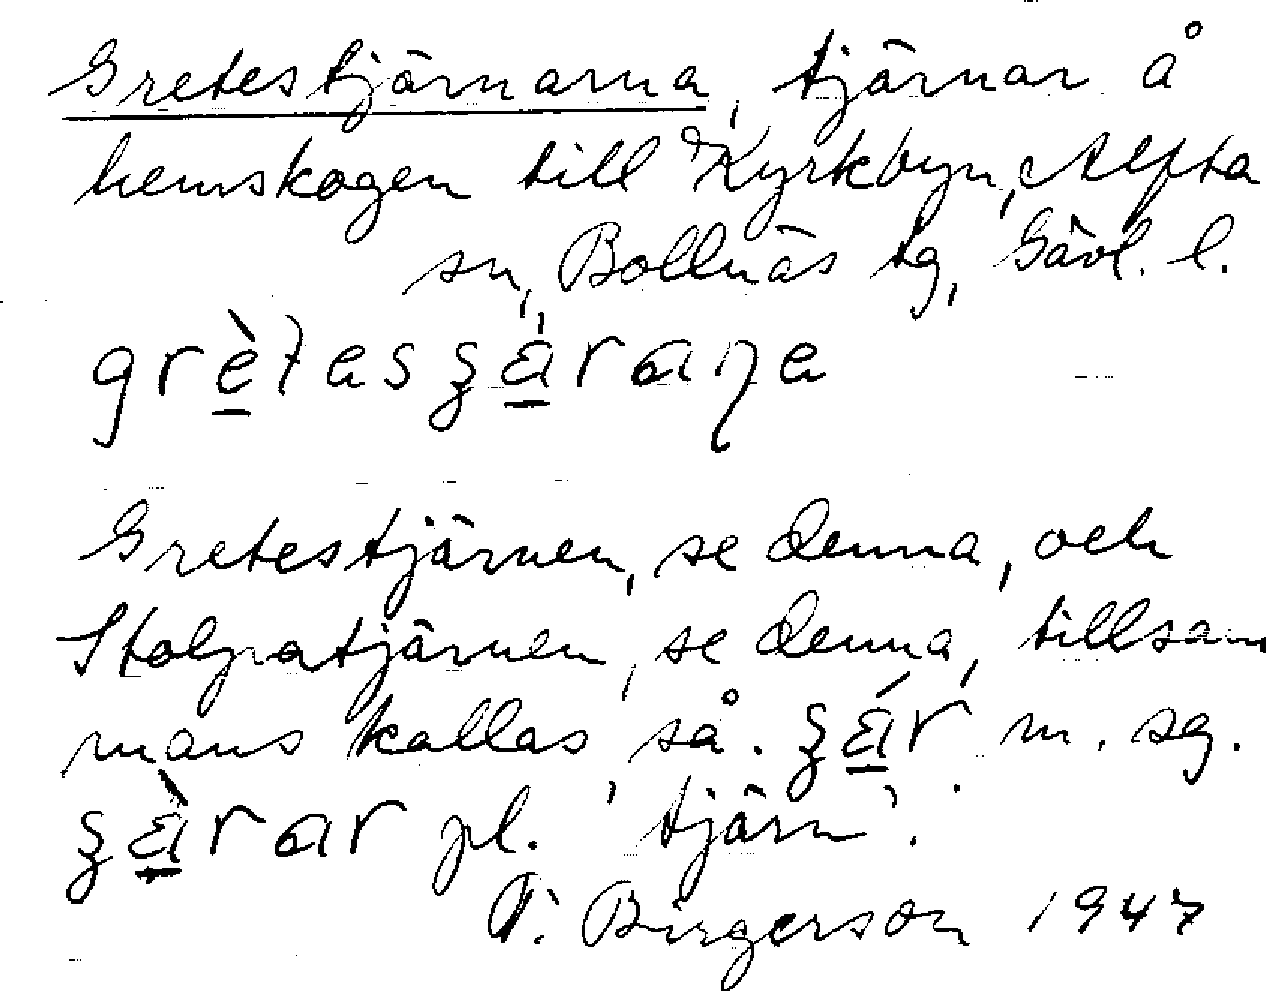 Gretestjärnarna, tjärnar å
hemskogen till Kyrkbyn, Alfta
sn, Bollnäs tg, Gävl. l.
Gretestjärnen, se denna, och
Stolpatjärnen, se denna, tillsam
mans kallas så. m. sg.
pl. 'tjärn'.
T. Birgerson 1947